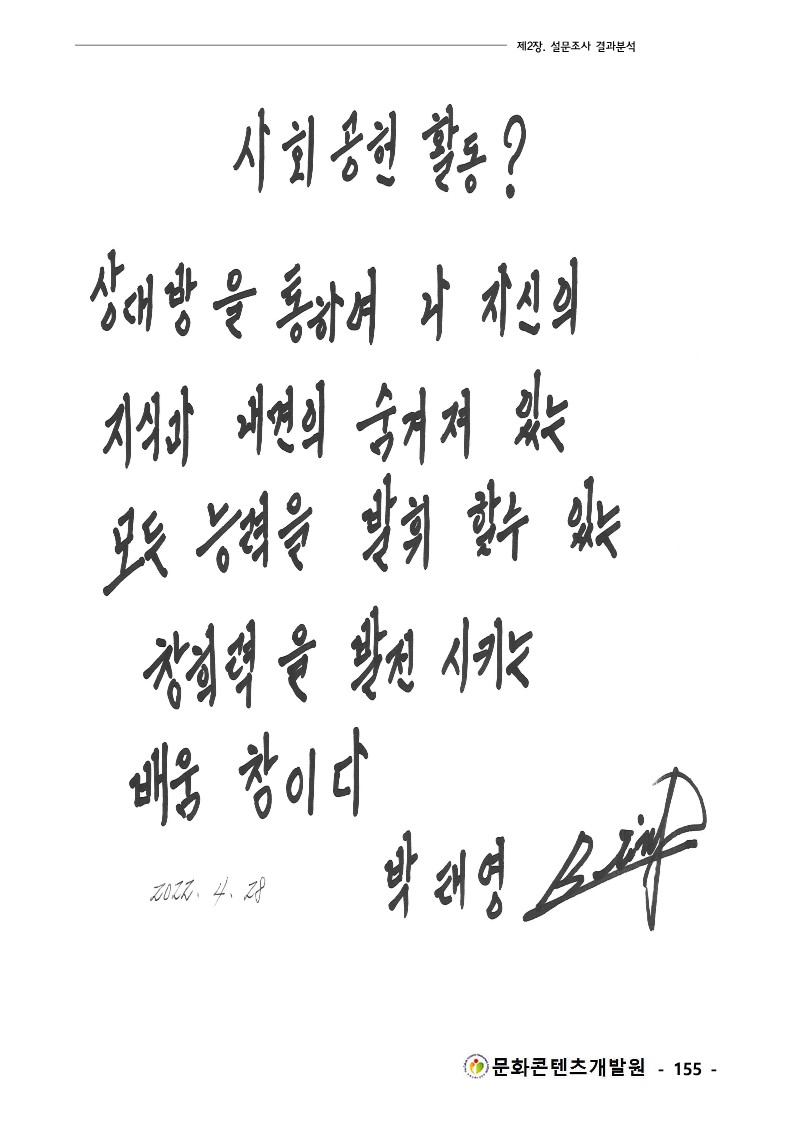 제2장. 설문조사 결과분석
사회공헌 활동?
상대방을 통하여 나 자신의
지식과 내면의 숨겨져 있는
모든 능력을 발휘 할수 있는
창희력을 발전 시키는
배움 참이다
박태영
2022. 4. 28
문화콘텐츠개발원 - 155 -